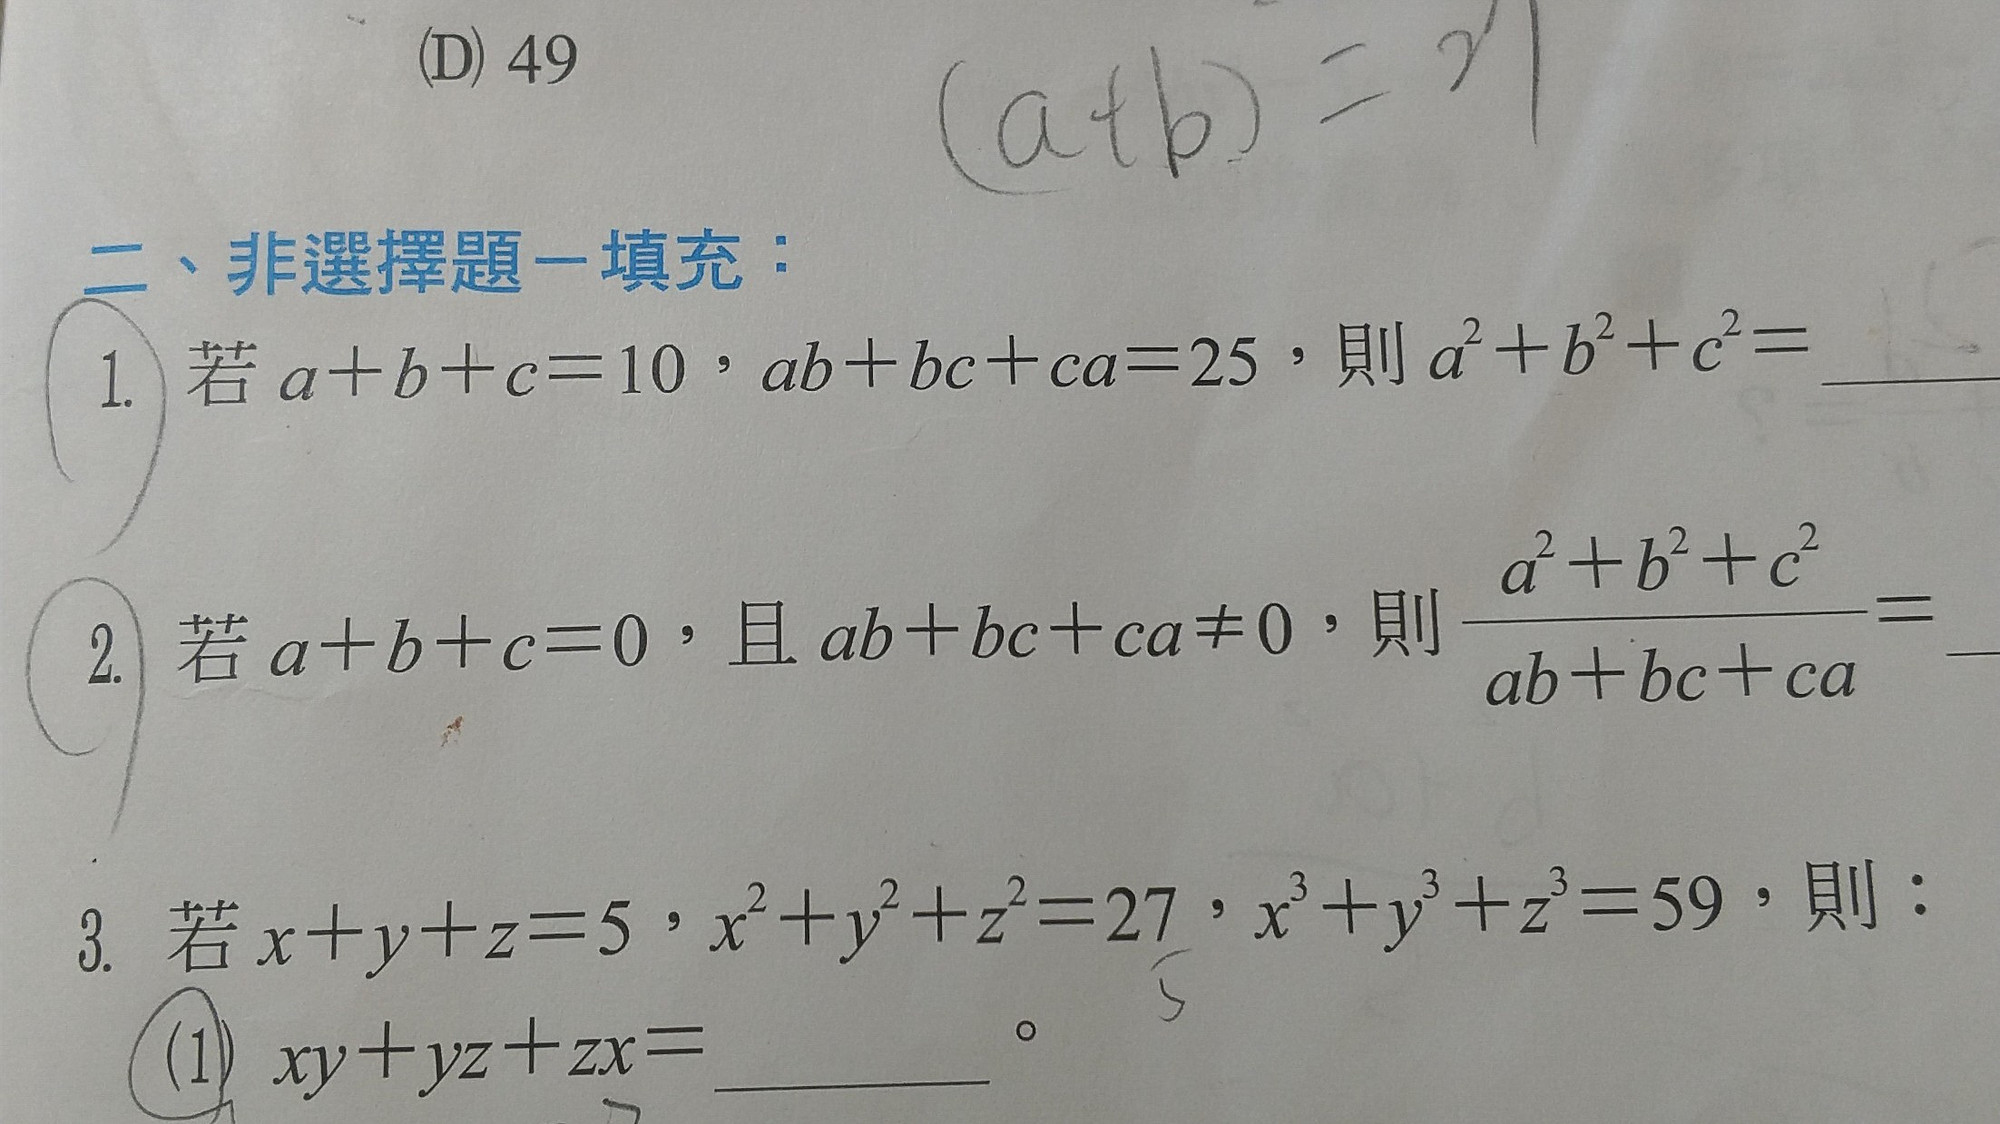 (D) 49
(a+b) =
二、非選擇題－填充：
1. 若 a＋b＋c＝10，ab＋bc＋ca＝25，則 a²＋b²＋c²＝
2. 若 a＋b＋c＝0，且 ab＋bc＋ca≠0，則 \frac{a²＋b²＋c²}{ab＋bc＋ca}＝
3. 若 x＋y＋z＝5，x²＋y²＋z²＝27，x³＋y³＋z³＝59，則：
(1) xy＋yz＋zx＝______。